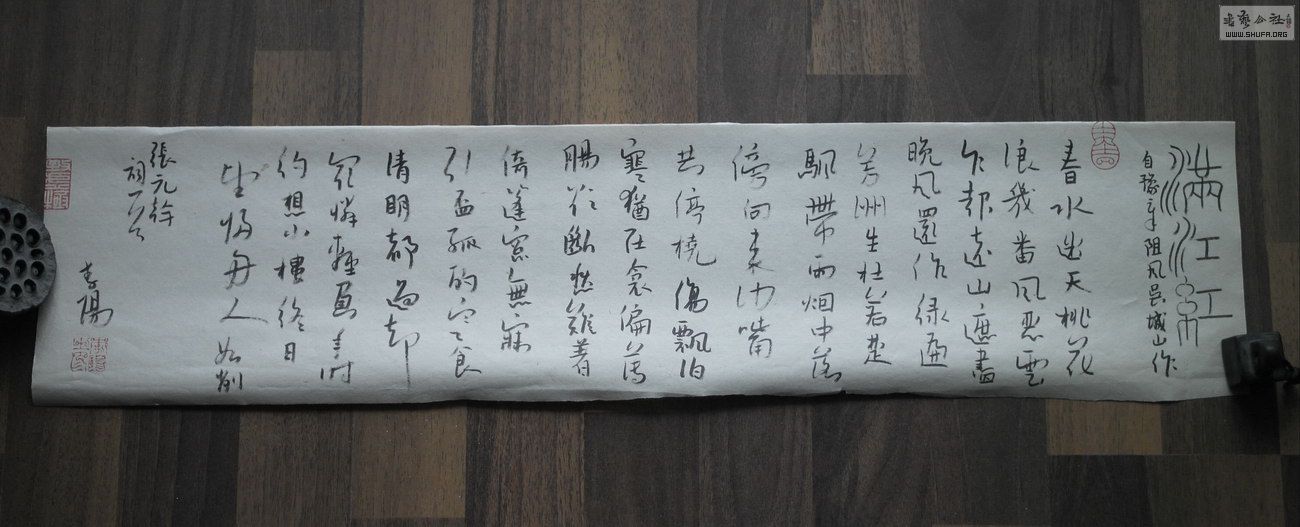 滿江紅
自豫章阻風吳城山作
春水迷天桃花
浪幾番風惡雲
乍起遠山遮盡
晚風還作綠遍
芳洲生杜若楚
帆帶雨烟中落
傍向來沙嘴
共停橈傷飄泊
寒猶在衾偏薄
腸欲斷愁難著
倚蓬窗無寐
引盃孤酌寒食
清明都過却
最憐輕負年時
約想小樓終日
望歸舟人如削
張元幹
詞一首
書藝公社
WWW.SHUFA.ORG